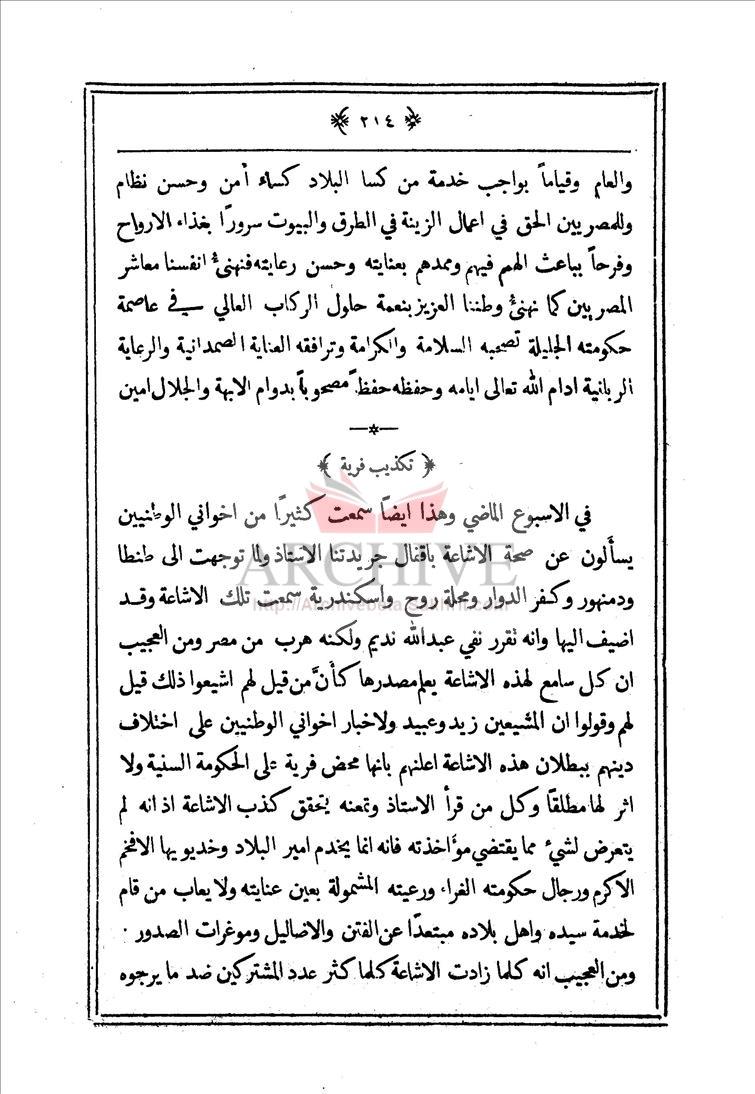 ﴿ ٢١٤ ﴾
والعام وقياماً بواجب خدمة من كسا البلاد كساء أمن وحسن نظام
وللمصريين الحق في اعمال الزينة في الطرق والبيوت سرورًا بغذاء الارواح
وفرحاً بباعث الهمم فيهم وممدهم بعنايته وحسن رعايته فنهنئ انفسنا معاشر
المصريين كما نهنئ وطننا العزيز بنعمة حلول الركاب العالي في عاصمة
حكومته الجليلة تصحبه السلامة والكرامة وترافقه العناية الصمدانية والرعاية
الربانية ادام الله تعالى ايامه وحفظه حفظاً مصحوباً بدوام الابهة والجلال امين
﴿ تكذيب فرية ﴾
في الاسبوع الماضي وهذا ايضاً سمعت كثيرًا من اخواني الوطنيين
يسألون عن صحة الاشاعة باقفال جريدتنا الاستاذ ولما توجهت الى طنطا
ودمنهور وكفر الدوار ومحلة روح واسكندرية سمعت تلك الاشاعة وقد
اضيف اليها وانه تقرر نفي عبدالله نديم ولكنه هرب من مصر ومن العجيب
ان كل سامع لهذه الاشاعة يعلم مصدرها كأنَّ من قيل لهم اشيعوا ذلك قيل
لهم وقولوا ان المشيعين زيد وعبيد ولاخبار اخواني الوطنيين على اختلاف
دينهم ببطلان هذه الاشاعة اعلنهم بانها محض فرية على الحكومة السنية ولا
اثر لها مطلقاً وكل من قرأ الاستاذ وتمعنه يتحقق كذب الاشاعة اذ انه لم
يتعرض لشيء مما يقتضي مؤاخذته فانه انما يخدم امير البلاد وخديويها الافخم
الاكرم ورجال حكومته الغراء ورعيته المشمولة بعين عنايته ولا يعاب من قام
لخدمة سيده واهل بلاده مبتعدًا عن الفتن والاضاليل وموغرات الصدور ·
ومن العجيب انه كلما زادت الاشاعة كلما كثر عدد المشتركين ضد ما يرجوه
ARCHIVE